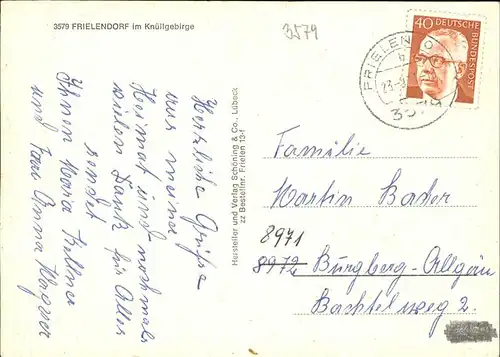 3579 FRIELENDORF im Knüllgebirge
3579
40 DEUTSCHE BUNDESPOST
FRIELENDO
3579
Herzliche Grüße
aus meiner
Heimat und nochmals
vielen Dank für Alles
sendet
Ihnen Maria Kellner
und Frau Anna Wagner
Hersteller und Verlag Schöning & Co., Lübeck
zz Bestellnr. Frielen 13-f
Familie
Martin Bader
8971
8972 Burgberg-Allgäu
Bachtel weg 2.